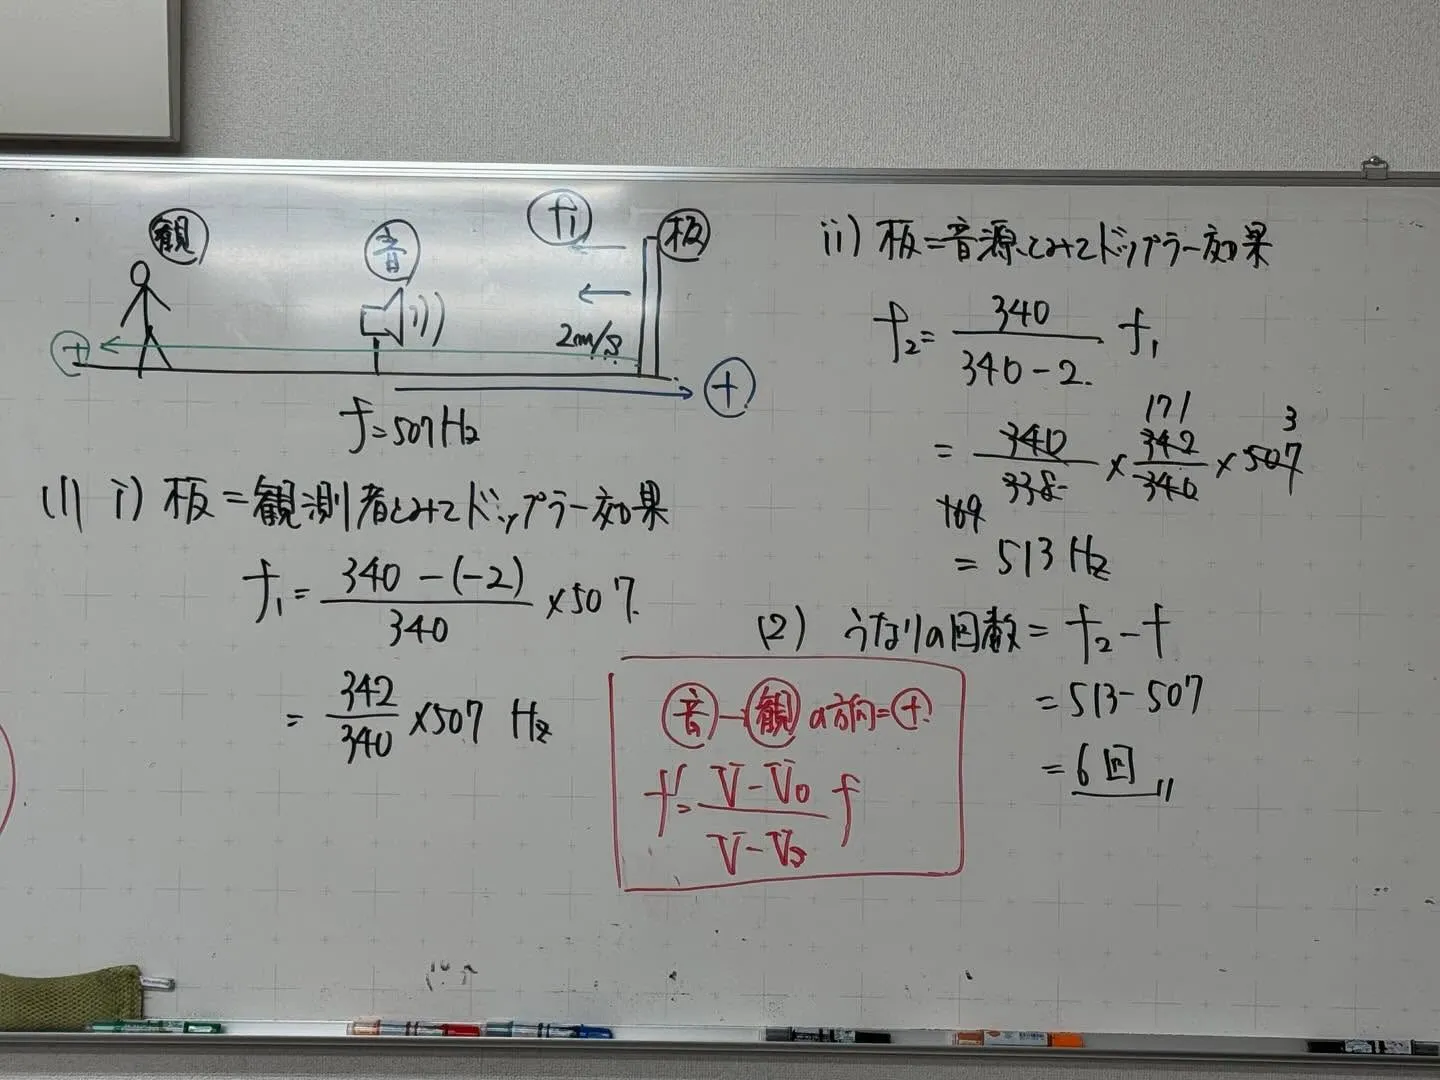 観 音 f₁ 板
2m/s
+ +
f=507Hz
(1) i) 板=観測者とみてドップラー効果
f₁= (340-(-2))/340 ×507
= 342/340 ×507 Hz
ii) 板=音源とみてドップラー効果
f₂= 340/(340-2) f₁
= 340/338 × 342/340 × 507
171 3
169
= 513 Hz
(2) うなりの回数= f₂-f
=513-507
=6回
音→観 の方向=+
f'= (V-Vo)/(V-Vs) f